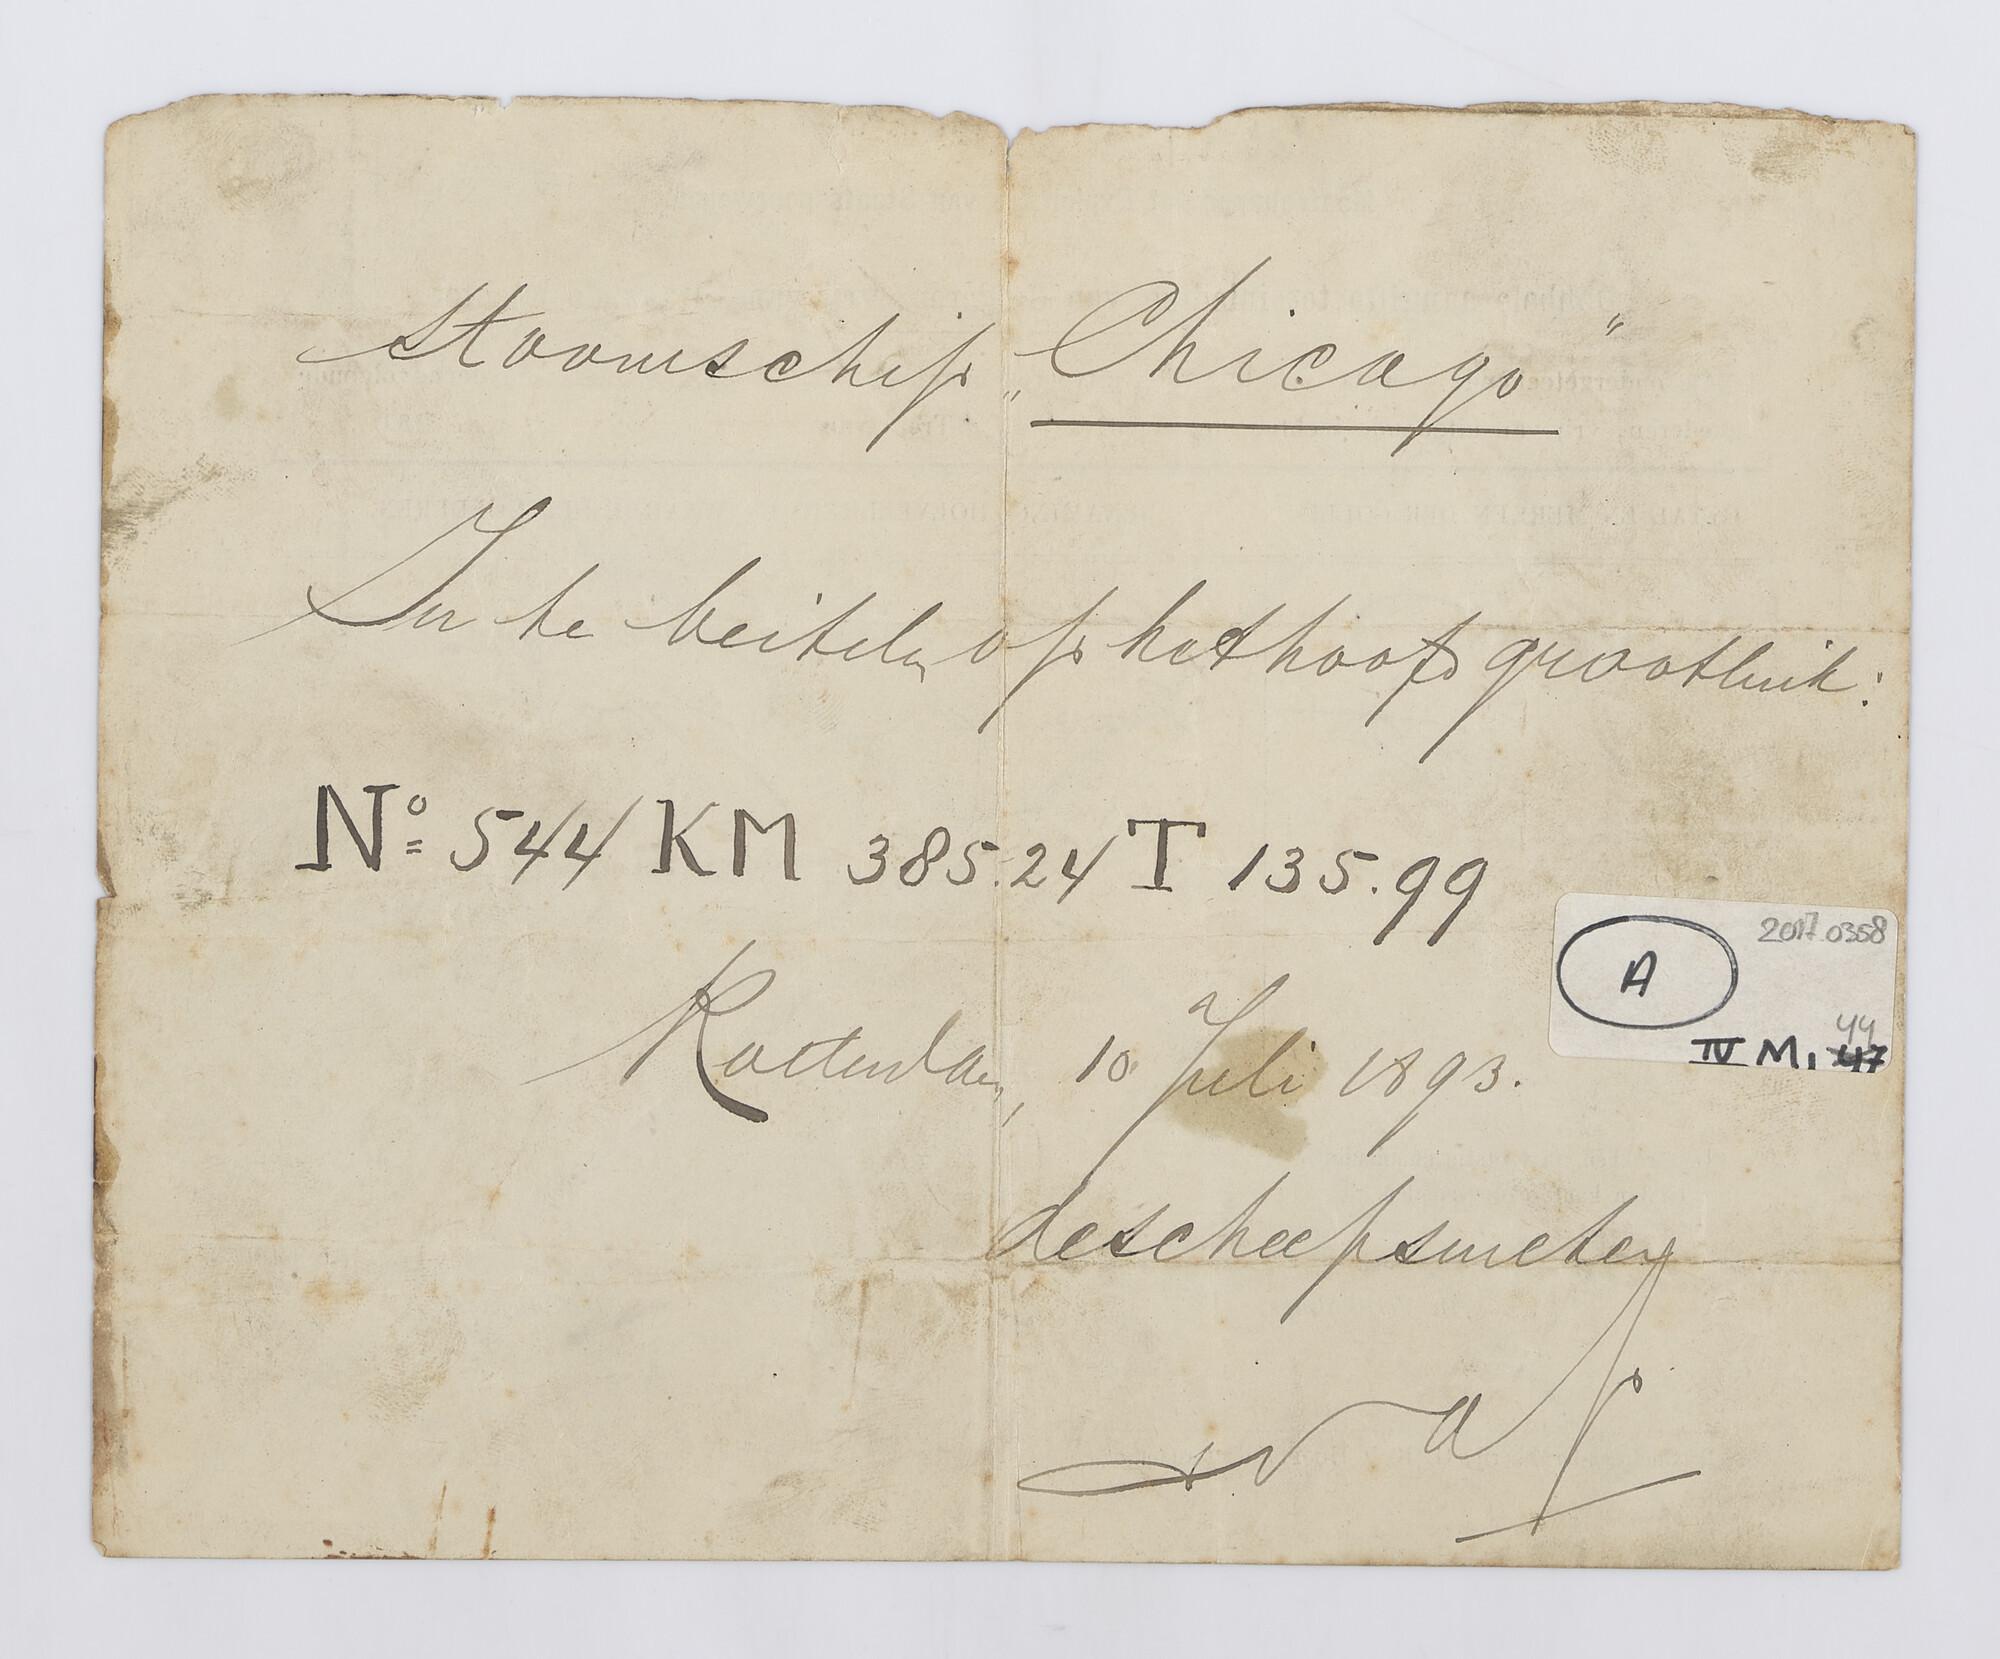 Stoomschip „Chicago"
In te beitelen op het hoofd grootluik:
No 544 KM 385.24 T 135.99
Rotterdam, 10 Juli 1893.
de scheepsmeter
2017.0358
A
44
IV M, 47